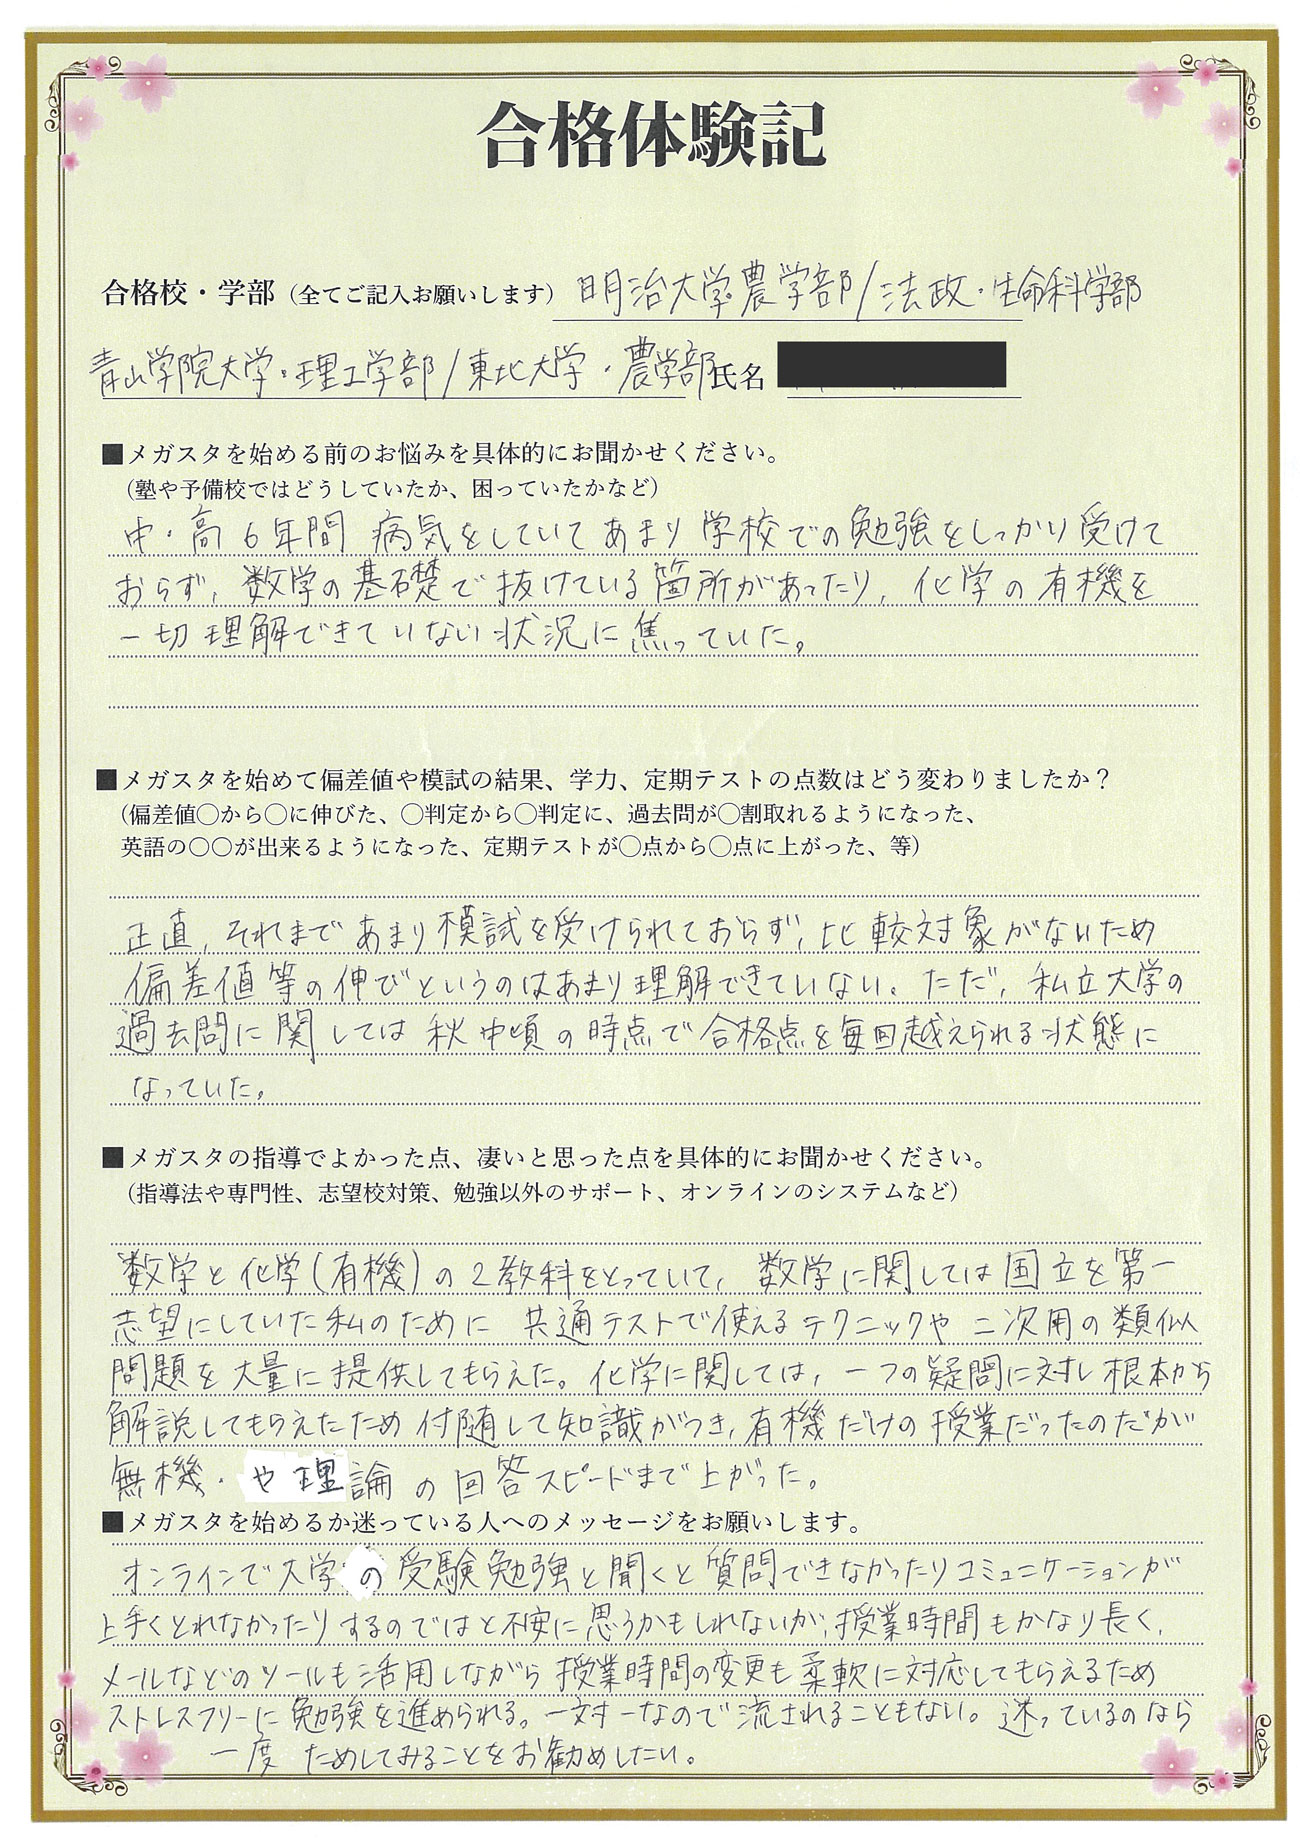 合格体験記
合格校・学部（全てご記入お願いします） 明治大学・農学部/法政・生命科学部
青山学院大学・理工学部/東北大学・農学部 氏名
■メガスタを始める前のお悩みを具体的にお聞かせください。
（塾や予備校ではどうしていたか、困っていたかなど）
中・高6年間 病気をしていてあまり学校での勉強をしっかり受けて
おらず、数学の基礎で抜けている箇所があったり、化学の有機を
一切理解できていない状況に焦っていた。
■メガスタを始めて偏差値や模試の結果、学力、定期テストの点数はどう変わりましたか？
（偏差値〇から〇に伸びた、〇判定から〇判定に、過去問が〇割取れるようになった、
英語の〇〇が出来るようになった、定期テストが〇点から〇点に上がった、等）
正直、それまであまり模試を受けられておらず、比較対象がないため
偏差値等の伸びというのはあまり理解できていない。ただ、私立大学の
過去問に関しては秋中頃の時点で合格点を毎回越えられる状態に
なっていた。
■メガスタの指導でよかった点、凄いと思った点を具体的にお聞かせください。
（指導法や専門性、志望校対策、勉強以外のサポート、オンラインのシステムなど）
数学と化学(有機)の2教科をとっていて、数学に関しては国立を第一
志望にしていた私のために 共通テストで使えるテクニックや二次用の類似
問題を大量に提供してもらえた。化学に関しては、一つの疑問に対し根本から
解説してもらえたため付随して知識がつき、有機だけの授業だったのだが
無機・や理論の回答スピードまで上がった。
■メガスタを始めるか迷っている人へのメッセージをお願いします。
オンラインで大学の受験勉強と聞くと質問できなかったりコミュニケーションが
上手くとれなかったりするのではと不安に思うかもしれないが、授業時間もかなり長く、
メールなどのツールも活用しながら授業時間の変更も柔軟に対応してもらえるため
ストレスフリーに勉強を進められる。一対一なので流されることもない。迷っているのなら
一度 ためしてみることをお勧めしたい。